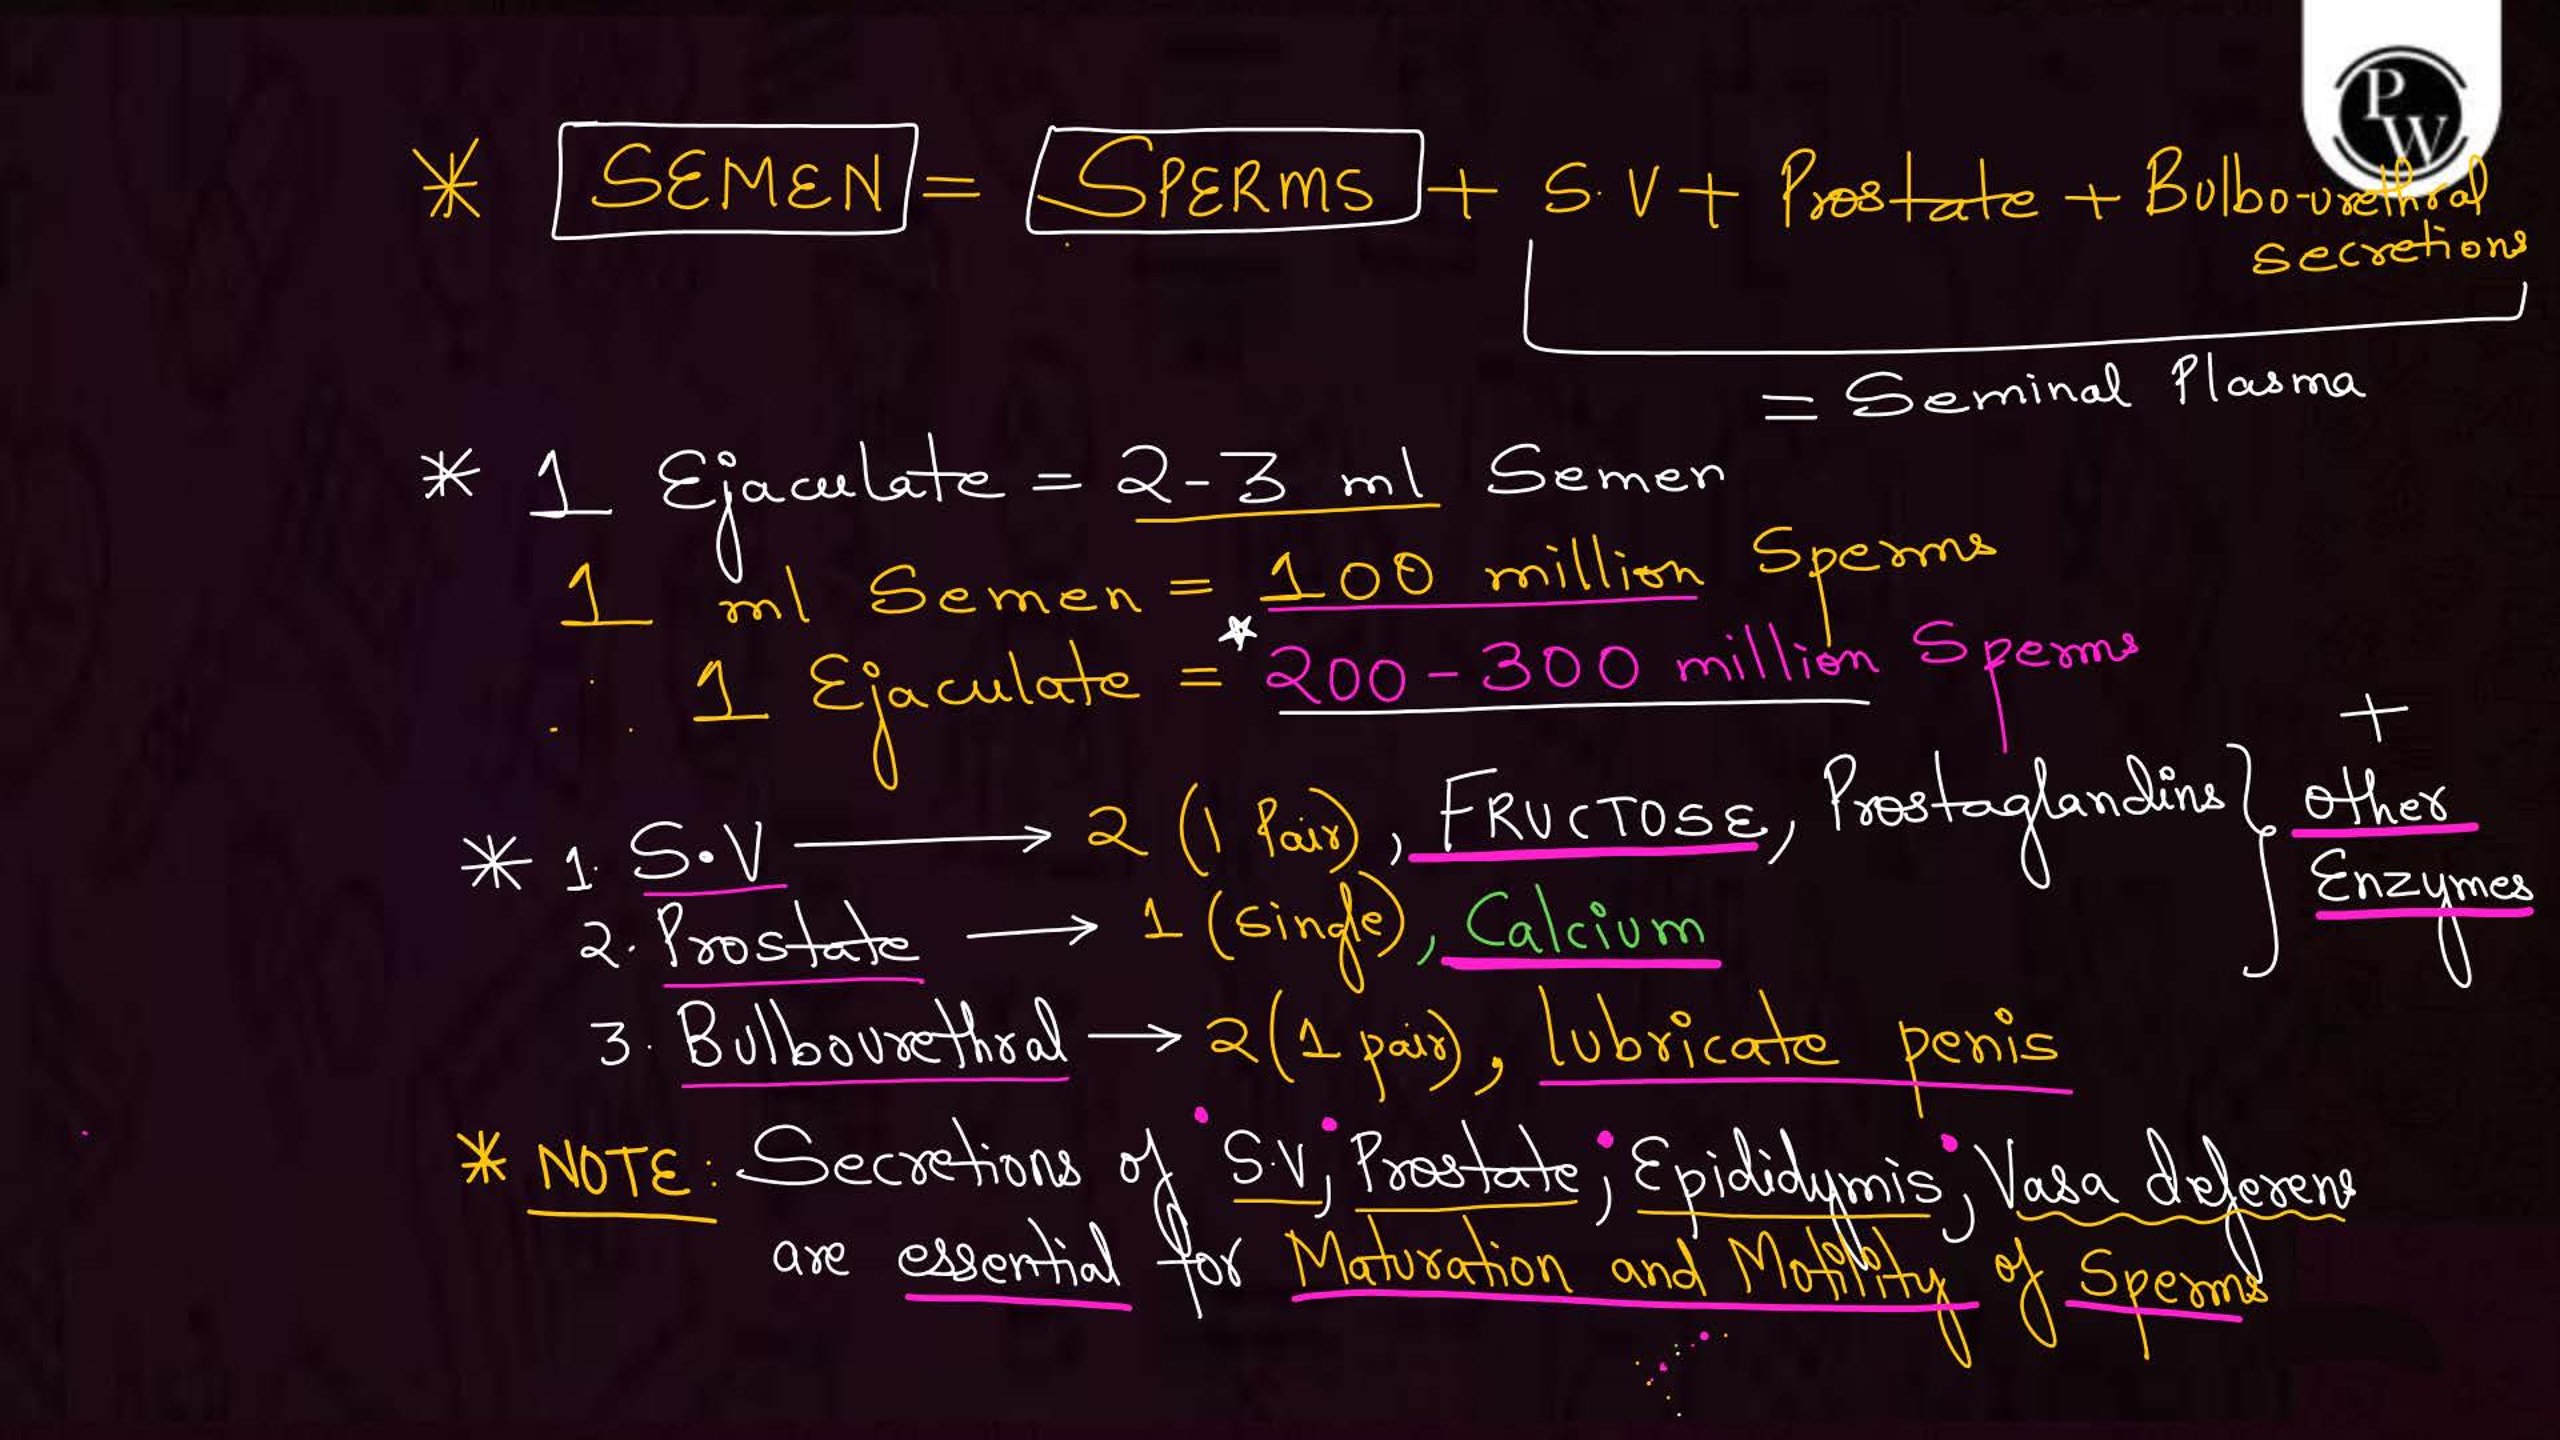 PW
* SEMEN = SPERMS + S.V + Prostate + Bulbo-urethral secretions
= Seminal Plasma
* 1 Ejaculate = 2-3 ml Semen
1 ml Semen = 100 million Sperms
∴ 1 Ejaculate = *200-300 million Sperms
* 1. S.V → 2 (1 Pair), FRUCTOSE, Prostaglandins } + other Enzymes
2. Prostate → 1 (single), Calcium
3. Bulbourethral → 2 (1 pair), lubricate penis
* NOTE: Secretions of S.V, Prostate, Epididymis, Vasa deferens
are essential for Maturation and Motility of Sperms